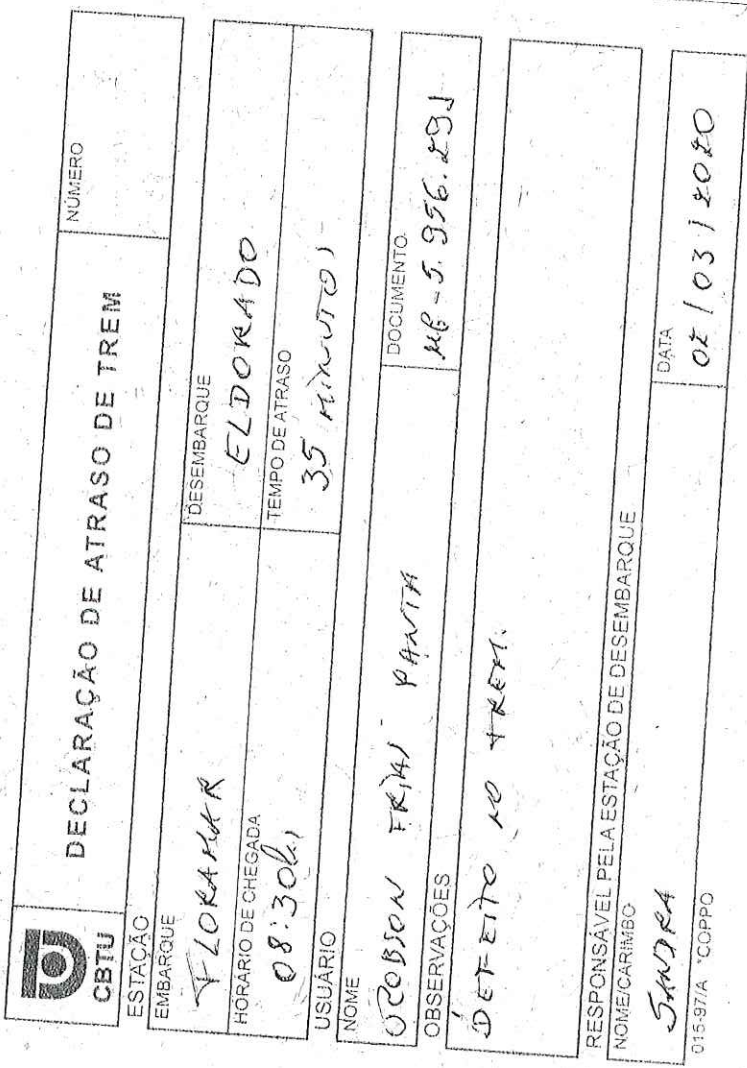 CBTU
DECLARAÇÃO DE ATRASO DE TREM
NÚMERO
ESTAÇÃO
EMBARQUE
FLORAMAR
DESEMBARQUE
ELDORADO
HORÁRIO DE CHEGADA
08:30h
TEMPO DE ATRASO
35 MINUTOS
USUÁRIO
NOME
ROBSON FRIAS PANTA
DOCUMENTO
MG-5.956.291
OBSERVAÇÕES
DEFEITO NO TREM.
RESPONSÁVEL PELA ESTAÇÃO DE DESEMBARQUE
NOME/CARIMBO
SANDRA
DATA
02/03/2020
015-97/A *COPPO